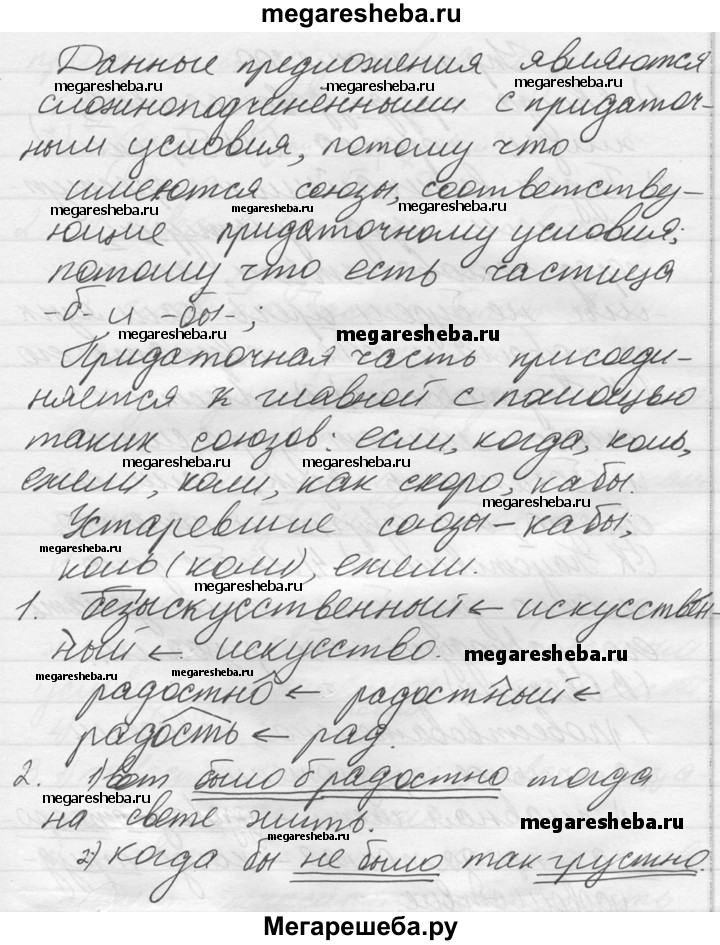 megaresheba.ru
Данные предложения являются
megaresheba.ru megaresheba.ru
сложноподчинёнными с придаточ-
megaresheba.ru
ным условия, потому что
имеются союзы, соответству-
megaresheba.ru megaresheba.ru megaresheba.ru
ющие придаточному условия;
потому что есть частица
-б- и -бы-;
megaresheba.ru megaresheba.ru
Придаточная часть присоеди-
няется к главной с помощью
таких союзов: если, когда, коль,
megaresheba.ru megaresheba.ru
ежели, коли, как скоро, кабы.
megaresheba.ru
Устаревшие союзы - кабы,
megaresheba.ru
коль (коли), ежели.
megaresheba.ru
1. безыскусственный ← искусствен-
ный ← искусство.
megaresheba.ru
megaresheba.ru megaresheba.ru
радостно ← радостный ←
радость ← рад.
2. 1) вот было б радостно тогда
megaresheba.ru megaresheba.ru
на свете жить.
megaresheba.ru
megaresheba.ru
2) когда бы не было так грустно.
Мегарешеба.ру